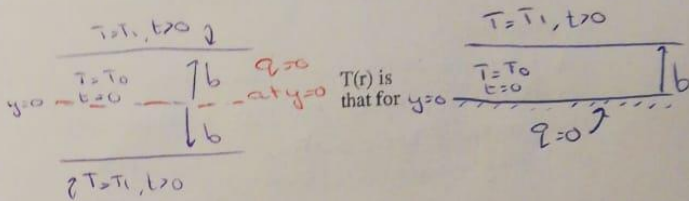 T=T₁, t>0
T=T₀
t=0
b
q=0
at y=0
y=0
b
T=T₁, t>0
T(r) is
that for
T=T₁, t>0
T=T₀
t=0
b
y=0
q=0